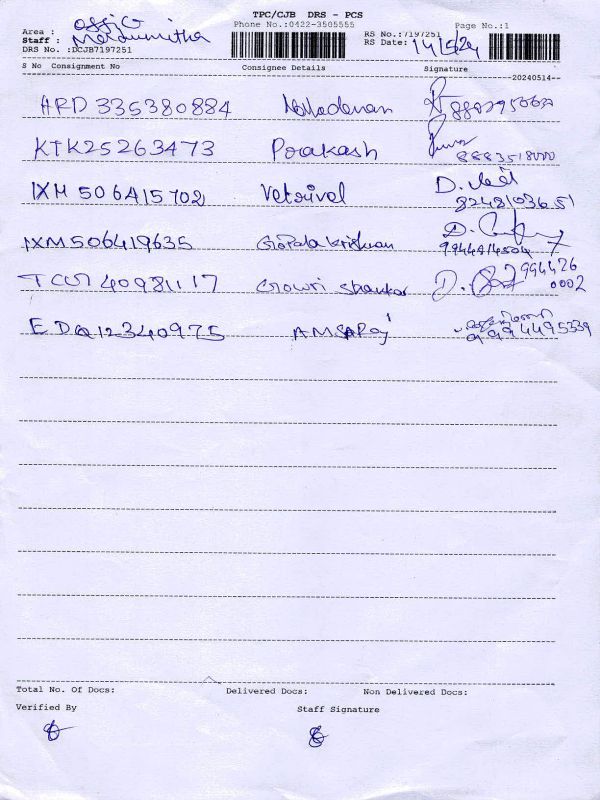 TPC/CJB DRS - PCS
Phone No.:0422-3505555 Page No.:1
Area : office
Staff : RS No.:7197251
DRS No. :DCJB7197251 RS Date: 14/5/24
S No Consignment No Consignee Details Signature
20240514
ARD 335380884
KTK25263473 Prakash 8883518000
IXM 506415702 Vetrivel D. 8248103651
IXM506419635 Gopala krishnan D. 9944414504
40981117 Gowri Shankar D. 994426 0002
EDQ12340975 9994495339
Total No. Of Docs: Delivered Docs: Non Delivered Docs:
Verified By Staff Signature